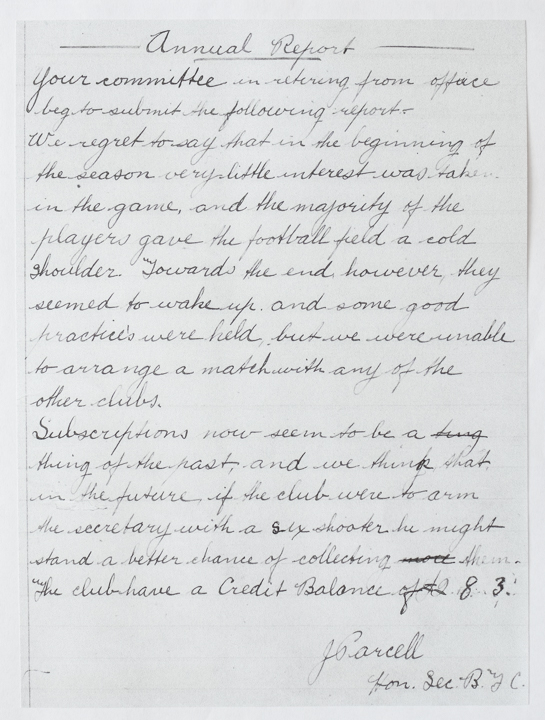 Annual Report
Your committee in retiring from office
beg to submit the following report.-
We regret to say that in the beginning of
the season very little interest was taken
in the game, and the majority of the
players gave the football field a cold
shoulder. Towards the end however, they
seemed to wake up. and some good
practices were held, but we were unable
to arrange a match with any of the
other clubs.
Subscriptions now seem to be a
thing of the past, and we think that
in the future, if the club were to arm
the secretary with a six shooter he might
stand a better chance of collecting them.
The club have a Credit Balance of 8. 3.
J Parcell
Hon. Sec. B. F C.